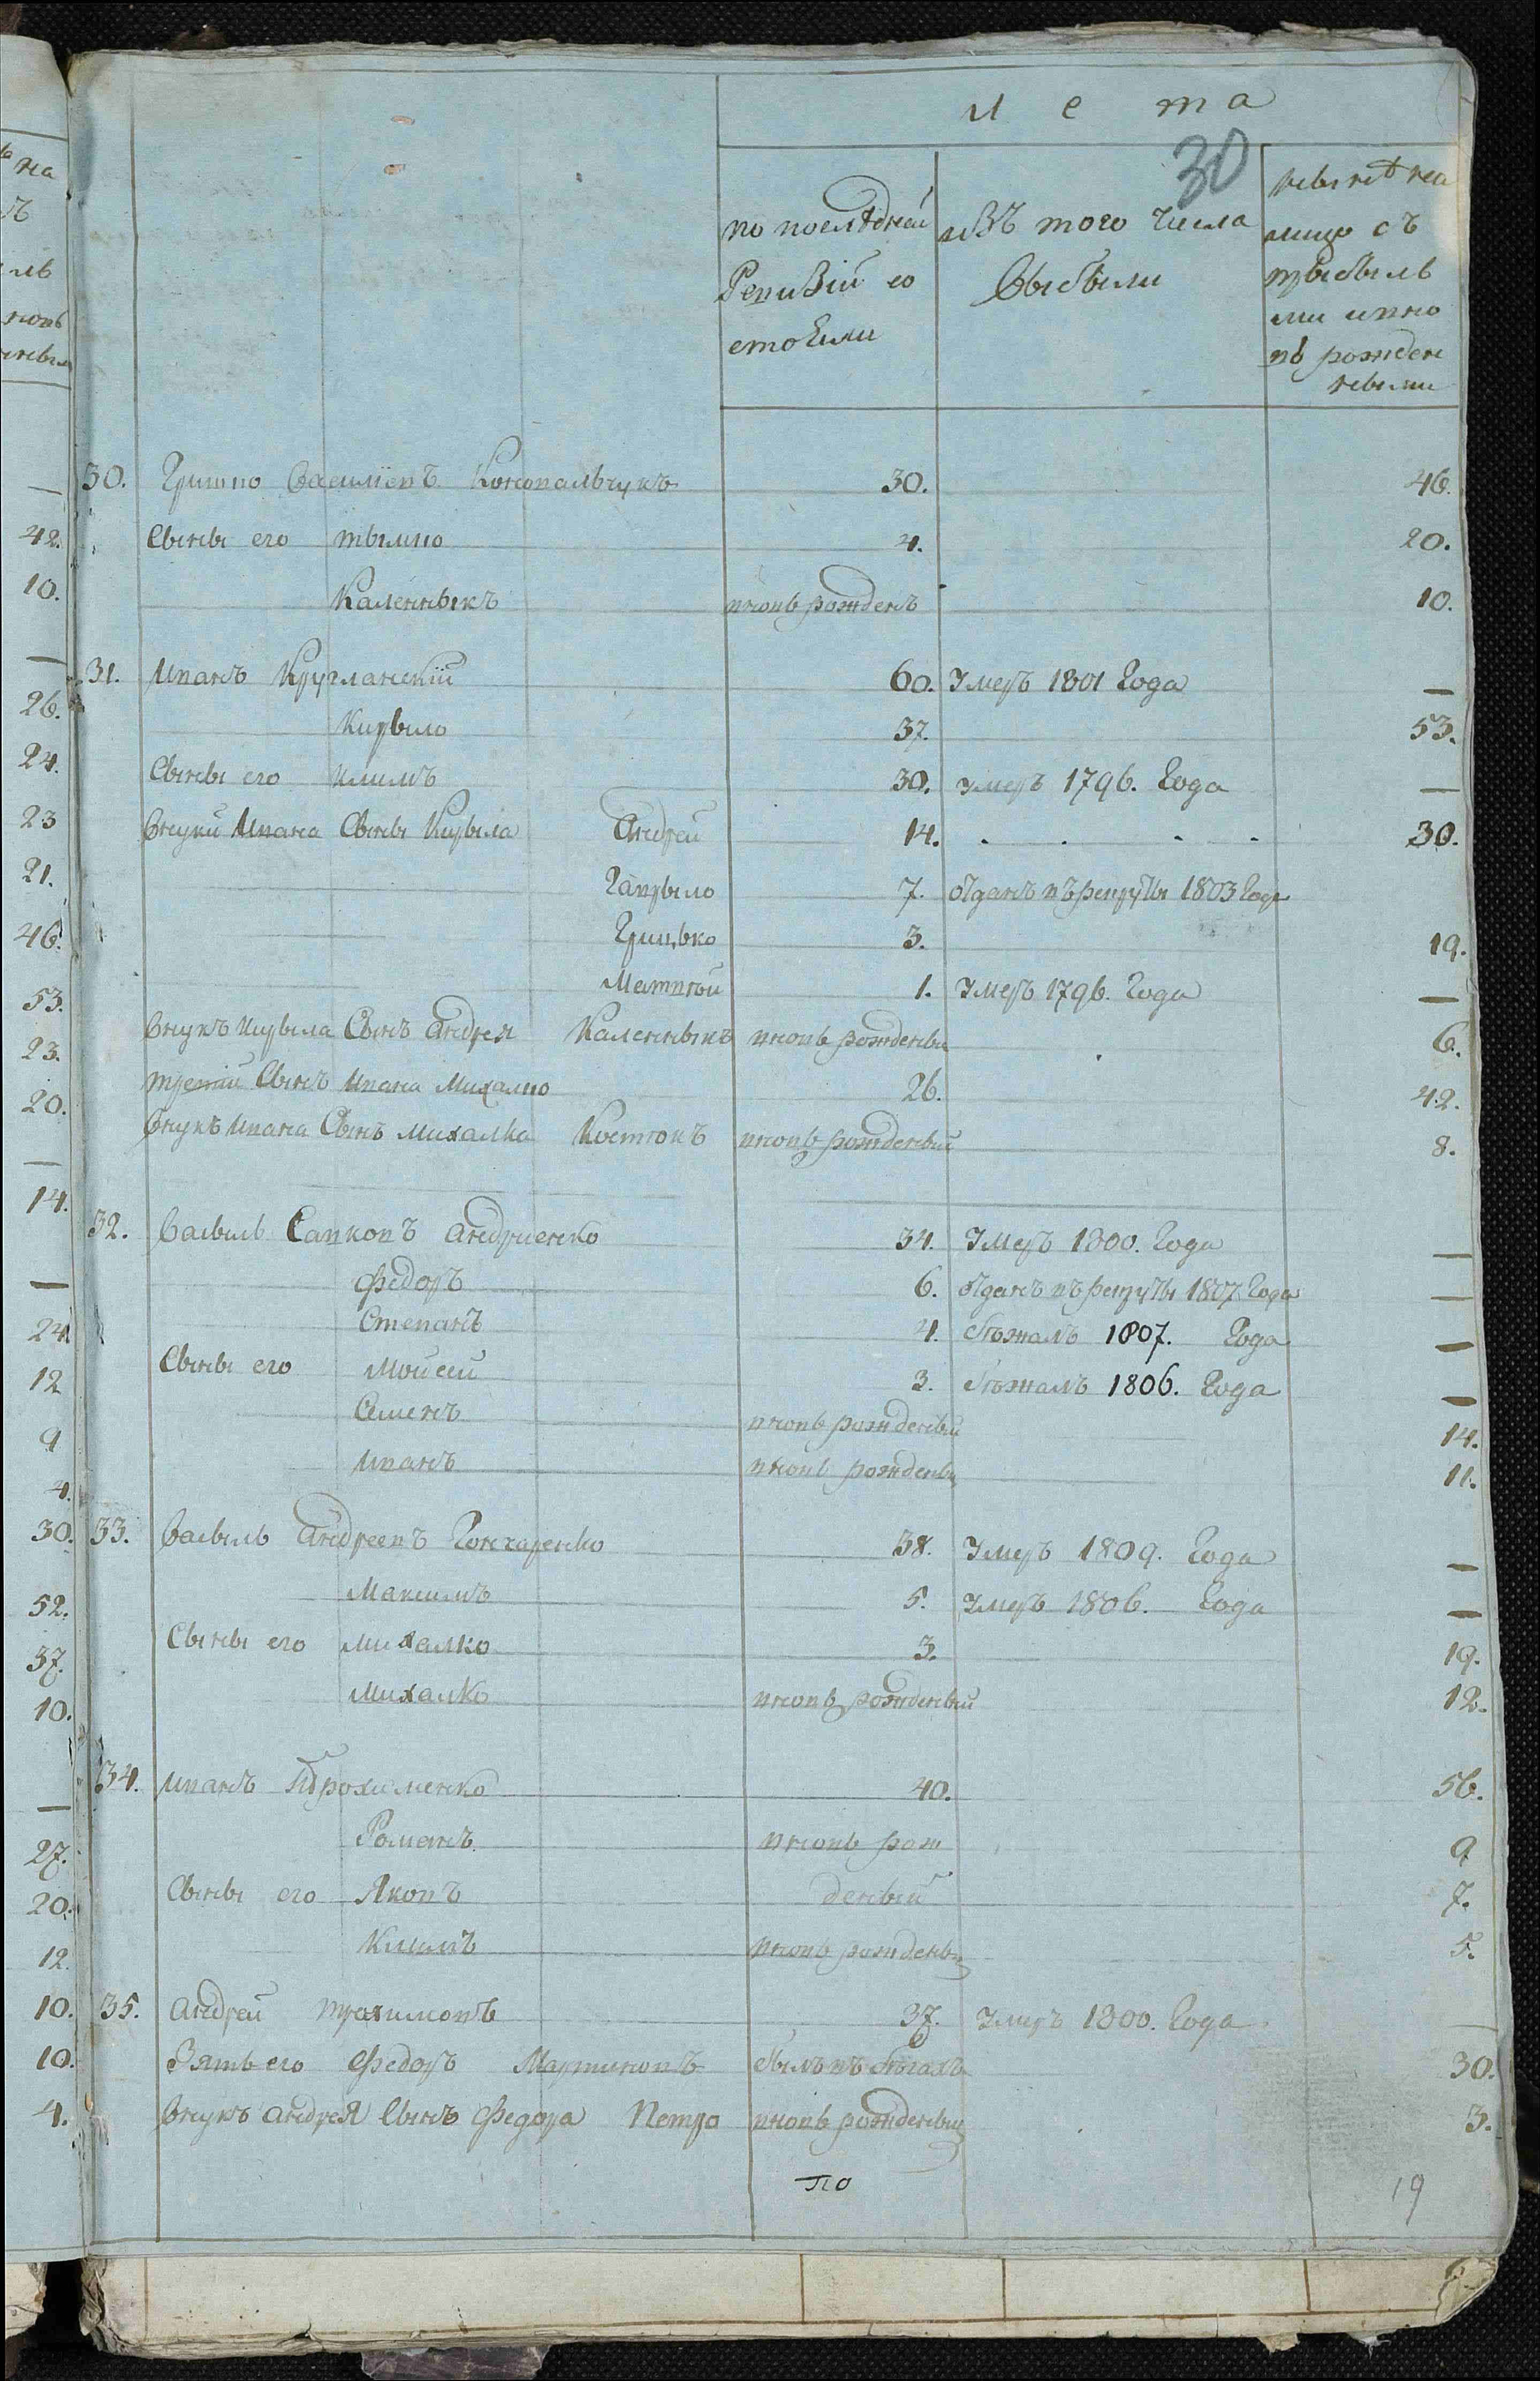 лета
30
по последней
Ревизии со
стояли
изъ того числа
выбыли
ныне на
лицо съ
прыбыль
ми и вно
въ рожден
ными
30. Грицко Василіевъ Коновальчукъ 30. 46.
Сыны его Тымко 4. 20.
Каленныкъ вновь рожденъ 10.
31. Иванъ Круглянскій 60. Умеръ 1801 Года —
Кирыло 37. 53.
Сыны его Климъ 30. умеръ 1796. Года —
Внуки Ивана Сыны Кирыла Андрей 14. 30.
Гаврыло 7. отданъ въ рекруты 1803 Года
Грицько 3. 19.
Матвей 1. Умеръ 1796. Года —
Внукъ Кирыла Сынъ Андрея Каленныкъ вновь рожденый 6.
третій Сынъ Ивана Михалко 26. 42.
Внукъ Ивана Сынъ Михалка Костюкъ вновь рожденый 8.
32. Василь Савковъ Андриенко 34. Умеръ 1800. Года —
Федоръ 6. отданъ въ рекруты 1807. Года —
Степанъ 4. бѣжалъ 1807. Года —
Сыны его Мойсей 3. бѣжалъ 1806. Года —
Семенъ вновь рожденый 14.
Иванъ вновь рожденый 11.
33. Василь Андреевъ Гончаренко 38. Умеръ 1809. Года —
Максимъ 5. Умеръ 1806. Года —
Сыны его михалко 3. 19.
Михалко вновь рожденый 12.
34. Иванъ Трохименко 40. 56.
Романъ вновь рож 9
Сыны его Яковъ деный 7.
Климъ вновь рожденый 5.
35. Андрей Трахимовъ 37. Умеръ 1800. Года —
Зять его Федоръ Мартиновъ былъ въ бѣгахъ 30.
Внукъ андрея Сынъ Федора Петро вновь рожденый 3.
по
19
42.
10.
26.
24.
23
21.
46.
53.
23.
20.
14.
24.
12
9
4.
30.
52.
37.
10.
27.
20.
12.
10.
10.
4.